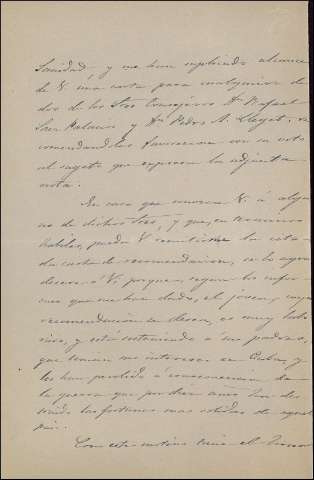 Sanidad y me han suplicado alcance
de V. una carta para cualquiera de
dos de los Sres Consejeros Dn Rafael
Saez Palacios y Dn Pedro A. Llaget, re
comendandoles favorezcan con su voto
al sugeto que expresa la adjunta
nota.
En caso que conozca V. á algu
no de dichos Sres, y que, en terminos
habiles, pueda V. remitirme la cita
da carta de recomendacion, se lo agra
decere á V. porque, segun los infor
mes que me han dado, el jóven, cuya
recomendacion se desea, es muy labo
rioso, y está sosteniendo á sus padres,
que tenian sus intereses en Cuba, y
los han perdido á consecuencia de
la guerra que por diez años ha des
truido las fortunas mas solidas de aquel
pais.
Con este motivo tiene el honor